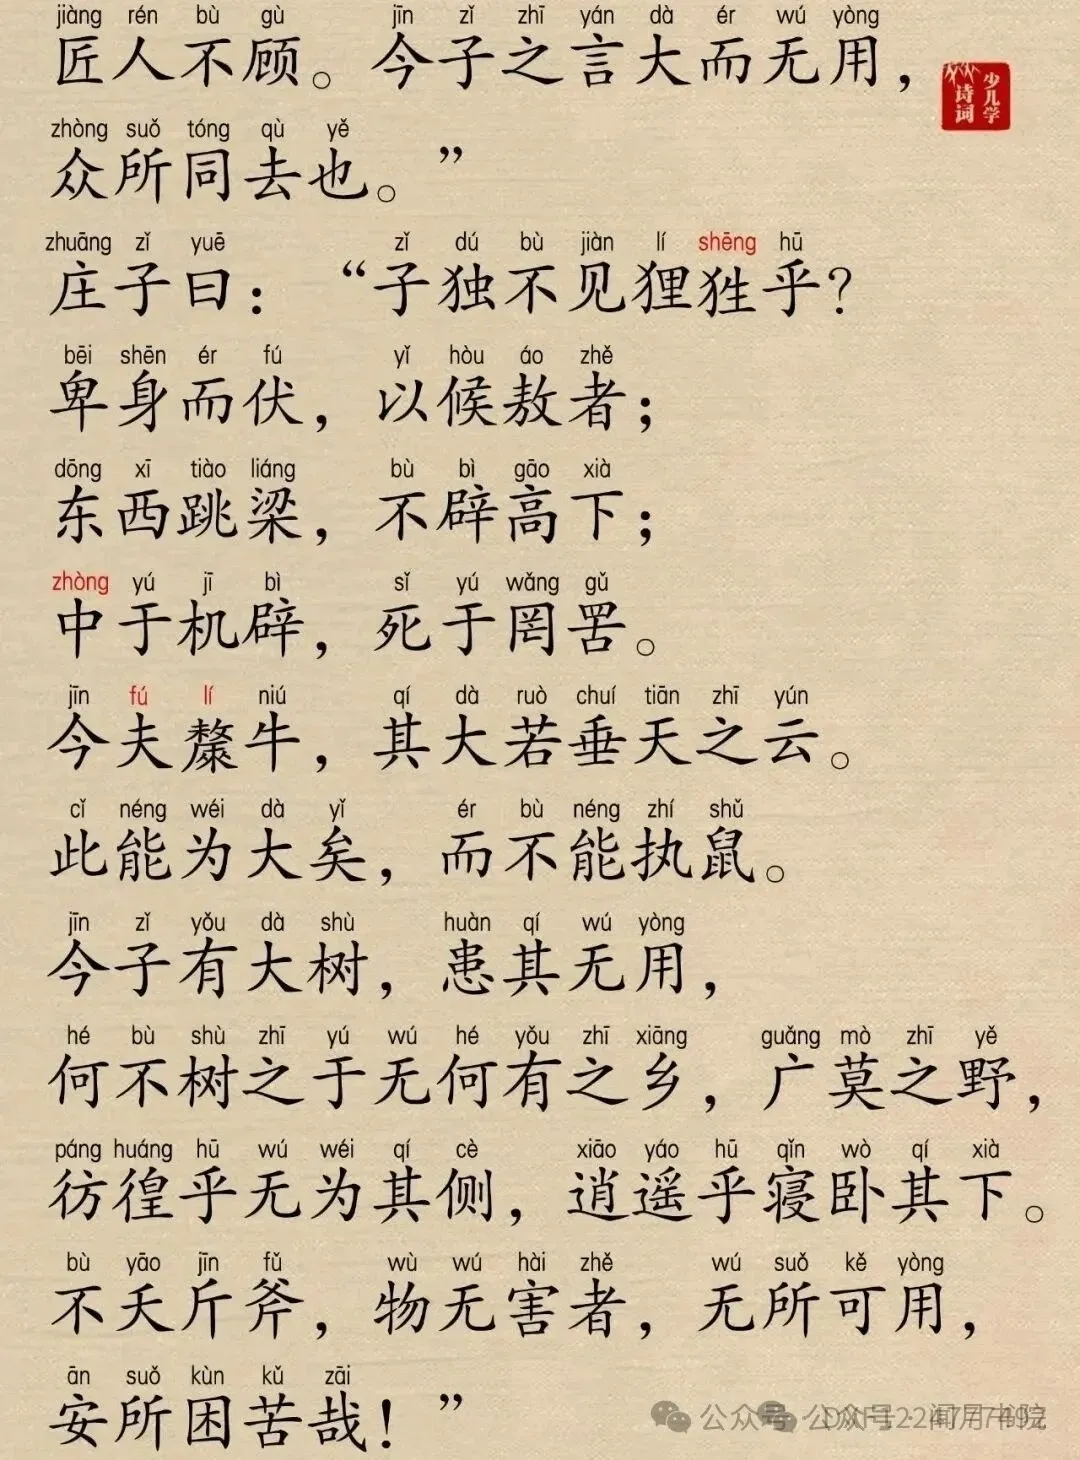 jiàng rén bù gù jīn zǐ zhī yán dà ér wú yòng
匠人不顾。今子之言大而无用，
少儿学
诗词
zhòng suǒ tóng qù yě
众所同去也。”
zhuāng zǐ yuē zǐ dú bù jiàn lí shēng hū
庄子曰：“子独不见狸狌乎？
bēi shēn ér fú yǐ hòu áo zhě
卑身而伏，以候敖者；
dōng xī tiào liáng bù bì gāo xià
东西跳梁，不辟高下；
zhòng yú jī bì sǐ yú wǎng gǔ
中于机辟，死于罔罟。
jīn fú lí niú qí dà ruò chuí tiān zhī yún
今夫斄牛，其大若垂天之云。
cǐ néng wéi dà yǐ ér bù néng zhí shǔ
此能为大矣，而不能执鼠。
jīn zǐ yǒu dà shù huàn qí wú yòng
今子有大树，患其无用，
hé bù shù zhī yú wú hé yǒu zhī xiāng guǎng mò zhī yě
何不树之于无何有之乡，广莫之野，
páng huáng hū wú wéi qí cè xiāo yáo hū qǐn wò qí xià
彷徨乎无为其侧，逍遥乎寝卧其下。
bù yāo jīn fǔ wù wú hài zhě wú suǒ kě yòng
不夭斤斧，物无害者，无所可用，
ān suǒ kùn kǔ zāi
安所困苦哉！”
公众号 公众号·闻月书院